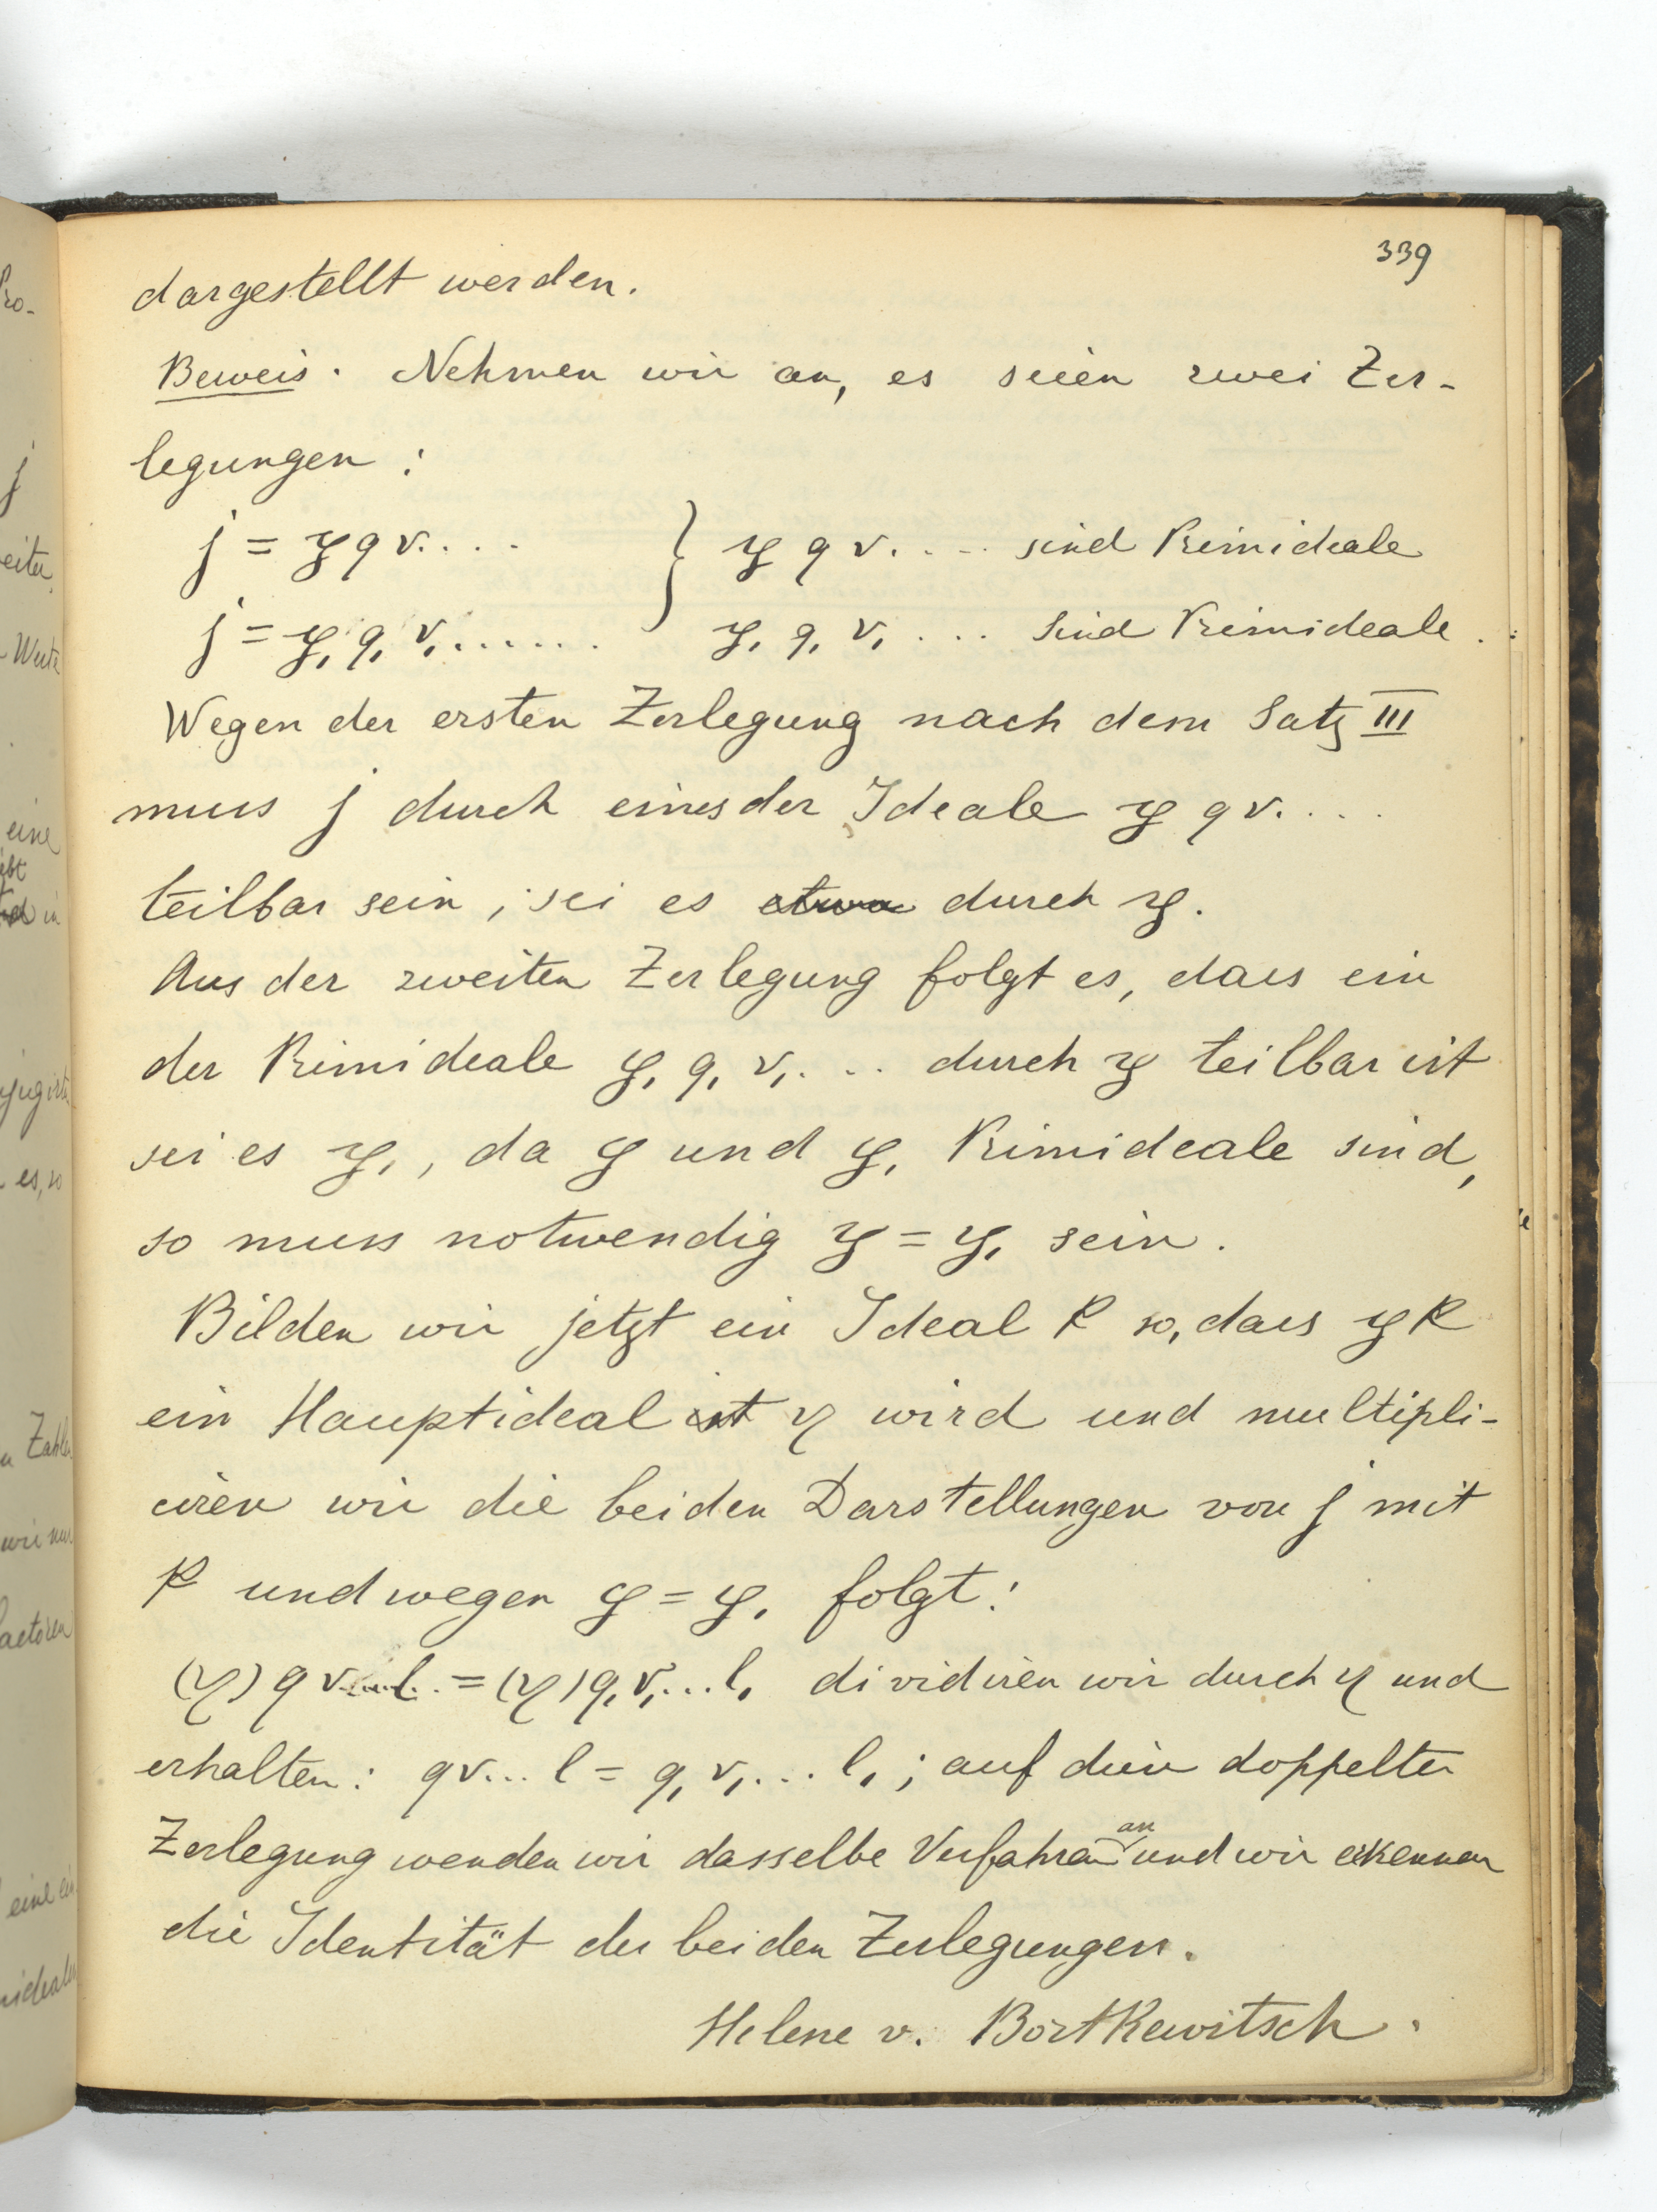 339
dargestellt werden.
Beweis. Nehmen wir an, es seien zwei Zer-
legungen:
j = 𝔭 q r.... } 𝔭 q r.... sind Primideale
j = 𝔭₁ q₁ r₁...... 𝔭₁ q₁ r₁ ... sind Primideale.
Wegen der ersten Zerlegung nach dem Satz III
muss j durch eines der Ideale 𝔭 q r....
teilbar sein, sei es etwa durch 𝔭.
Aus der zweiten Zerlegung folgt es, dass ein
der Primideale 𝔭₁ q₁ r₁... durch 𝔭 teilbar ist
sei es 𝔭₁, da 𝔭 und 𝔭₁ Primideale sind,
so muss notwendig 𝔭 = 𝔭₁ sein.
Bilden wir jetzt ein Ideal k so, dass 𝔭 k
ein Hauptideal ist η wird und multipli-
ciren wir die beiden Darstellungen von j mit
k und wegen 𝔭 = 𝔭₁ folgt:
(η) q r...l. = (η) q₁ r₁...l₁ dividiren wir durch η und
erhalten: q r... l = q₁ r₁... l₁; auf diese doppelte
Zerlegung wenden wir dasselbe Verfahren an und wir erkennen
die Identität der beiden Zerlegungen.
Helene v. Bortkewitsch.